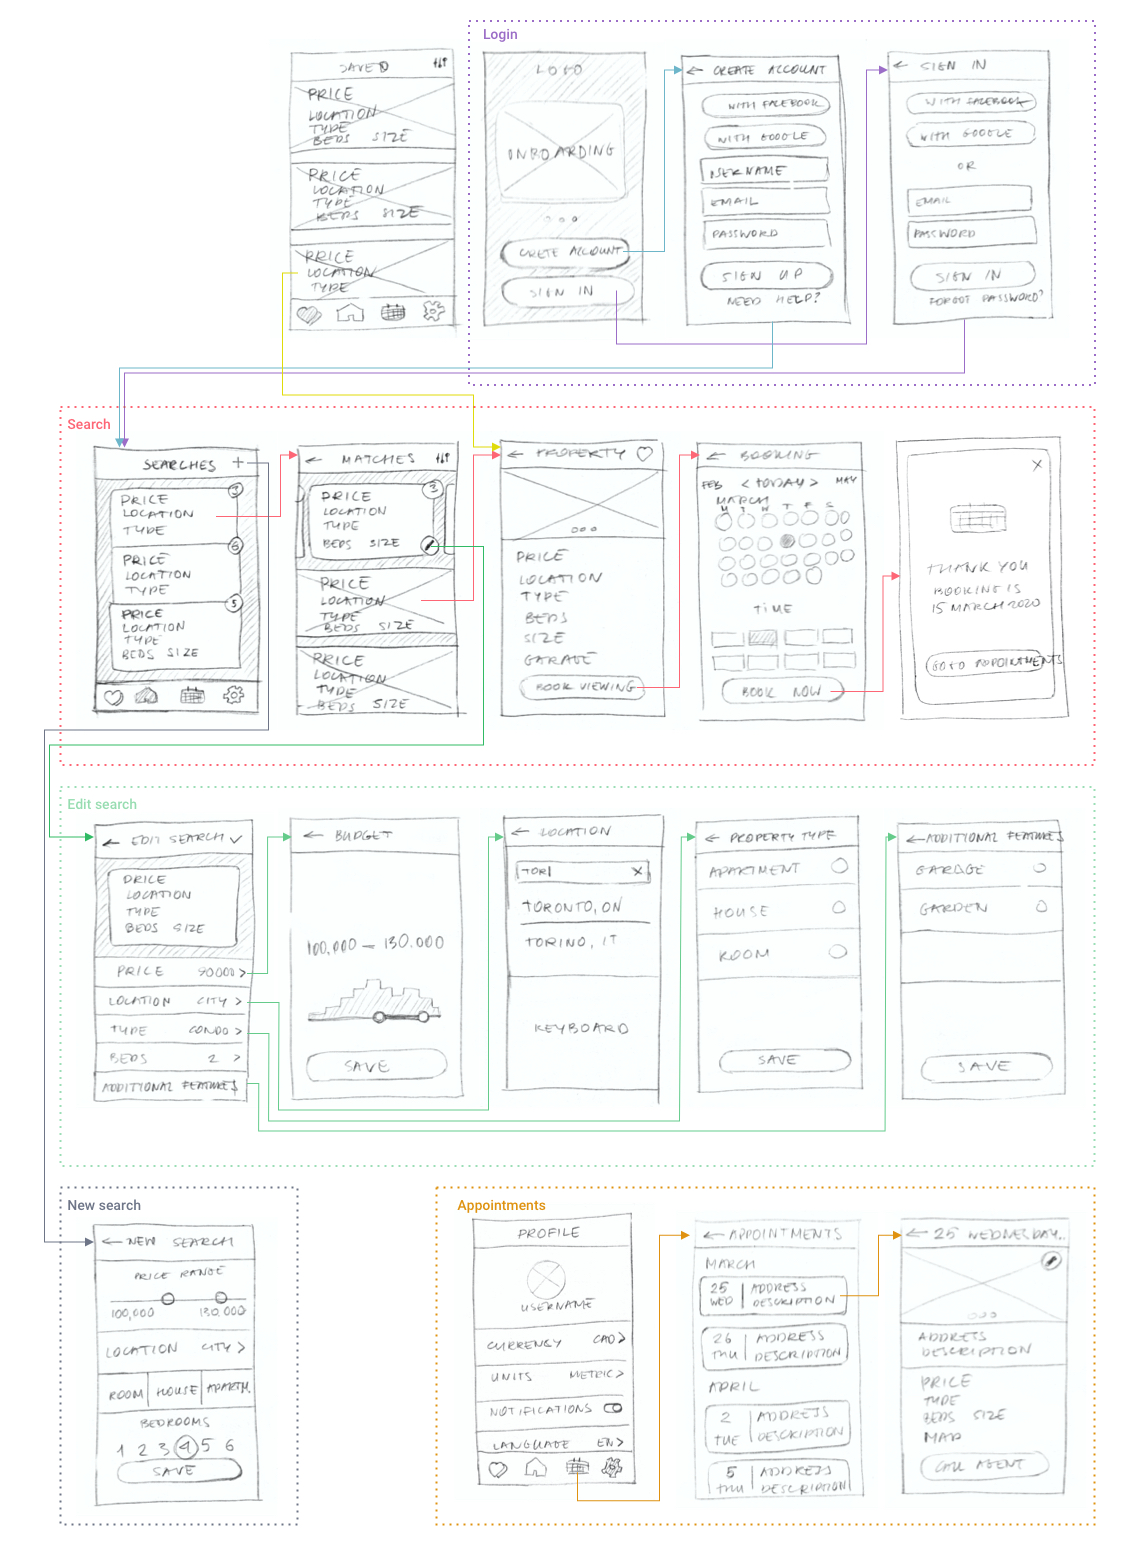 Login
SAVED
PRICE
LOCATION
TYPE
BEDS SIZE
PRICE
LOCATION
TYPE
BEDS SIZE
PRICE
LOCATION
TYPE
LOGO
ONBOARDING
CRETE ACCOUNT
SIGN IN
← CREATE ACCOUNT
WITH FACEBOOK
WITH GOOGLE
USERNAME
EMAIL
PASSWORD
SIGN UP
NEED HELP?
← SIGN IN
WITH FACEBOOK
WITH GOOGLE
OR
EMAIL
PASSWORD
SIGN IN
FORGOT PASSWORD?
Search
SEARCHES +
3
PRICE
LOCATION
TYPE
6
PRICE
LOCATION
TYPE
5
PRICE
LOCATION
TYPE
BEDS SIZE
← MATCHES
3
PRICE
LOCATION
TYPE
BEDS SIZE
PRICE
LOCATION
TYPE
BEDS SIZE
PRICE
LOCATION
TYPE
BEDS SIZE
← PROPERTY
PRICE
LOCATION
TYPE
BEDS
SIZE
GARAGE
BOOK VIEWING
← BOOKING
FEB < TODAY > MAY
MARCH
M T W T F S
TIME
BOOK NOW
X
THANK YOU
BOOKING IS
15 MARCH 2020
GO TO APPOINTMENTS
Edit search
← EDIT SEARCH ✓
PRICE
LOCATION
TYPE
BEDS SIZE
PRICE 90000 >
LOCATION CITY >
TYPE CONDO >
BEDS 2 >
ADDITIONAL FEATURES
← BUDGET
100,000 — 130.000
SAVE
← LOCATION
TOR| X
TORONTO, ON
TORINO, IT
KEYBOARD
← PROPERTY TYPE
APARTMENT
HOUSE
ROOM
SAVE
← ADDITIONAL FEATURES
GARAGE
GARDEN
SAVE
New search
← NEW SEARCH
PRICE RANGE
100,000 130.000
LOCATION CITY >
ROOM HOUSE APARTM.
BEDROOMS
1 2 3 4 5 6
SAVE
Appointments
PROFILE
USERNAME
CURRENCY CAD >
UNITS METRIC >
NOTIFICATIONS
LANGUAGE EN >
← APPOINTMENTS
MARCH
25 ADDRESS
WED DESCRIPTION
26 ADDRESS
THU DESCRIPTION
APRIL
2 ADDRESS
TUE DESCRIPTION
5 ADDRESS
THU DESCRIPTION
← 25 WEDNESDAY..
ADDRESS
DESCRIPTION
PRICE
TYPE
BEDS SIZE
MAP
CALL AGENT